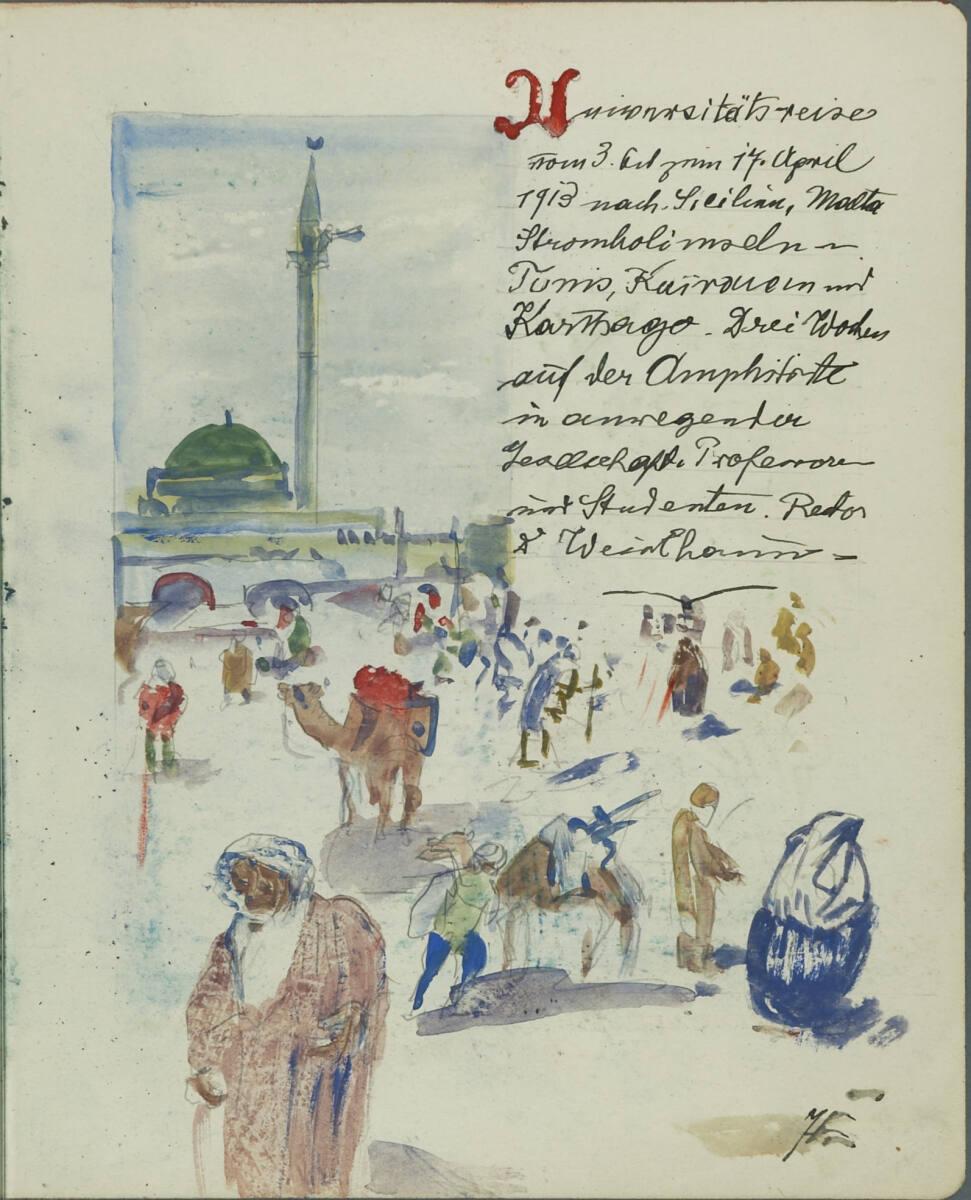 Universitätsreise
vom 3. bis zum 17. April
1913 nach Sicilien, Malta
Stromboliinseln –
Tunis, Kairouan und
Karthago. Drei Wochen
auf der Amphitrite
in anregender
Gesellschaft. Professoren
und Studenten. Rector
Dr